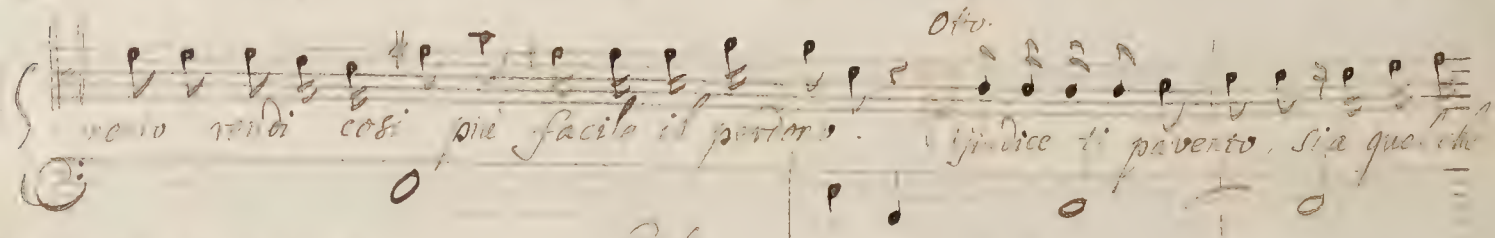 Otto.
rendi cosi più facile il perdono. dice ti pavento, sia quel che